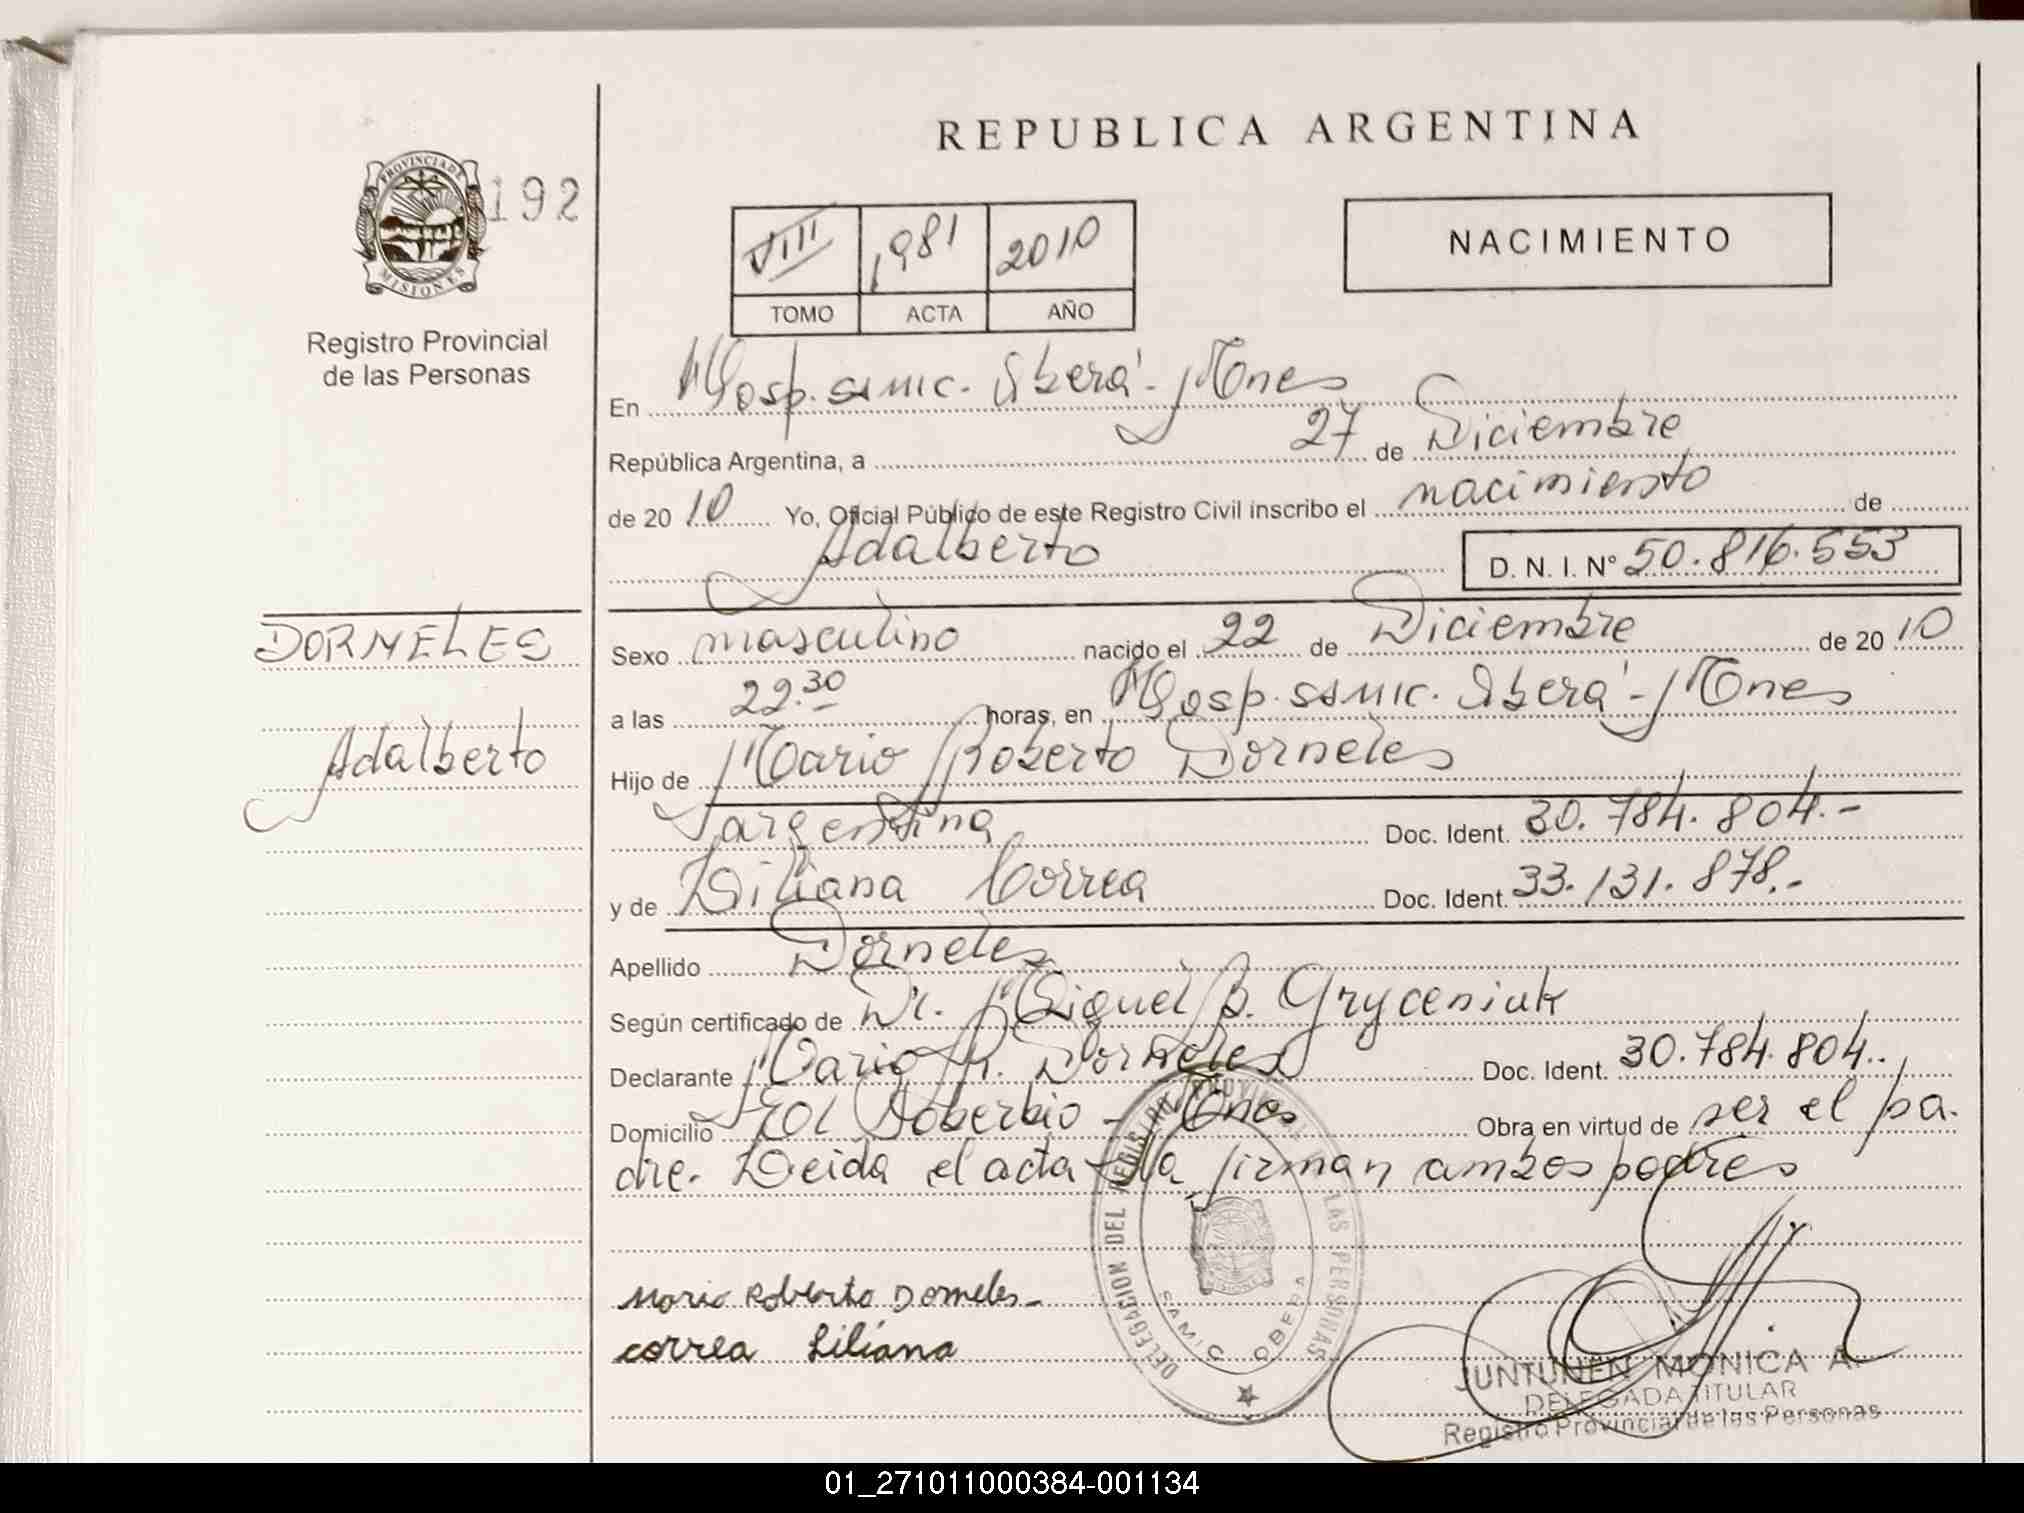 REPUBLICA ARGENTINA
PROVINCIA DE
MISIONES
192
Registro Provincial
de las Personas
VIII 1981 2010
TOMO ACTA AÑO
NACIMIENTO
En Hosp. SAMIC. Oberá - Mnes
República Argentina, a 27 de Diciembre
de 20 10 Yo, Oficial Público de este Registro Civil inscribo el nacimiento de
Adalberto D. N. I. Nº 50.816.553
DORNELES
Adalberto
Sexo masculino nacido el 22 de Diciembre de 20 10
a las 22.30 horas, en Hosp. SAMIC. Oberá - Mnes
Hijo de Mario Roberto Dorneles
argentina Doc. Ident. 30.784.804.-
y de Liliana Correa Doc. Ident. 33.131.878.-
Apellido Dorneles
Según certificado de Dr. Miguel B. Gryceniuk
Declarante Mario R. Dorneles Doc. Ident. 30.784.804..
Domicilio El Soberbio - Mnes Obra en virtud de ser el pa.
dre. Leida el acta la firman ambos padres
Mario Roberto Dorneles-
correa Liliana
DELEGACION DEL REGISTRO PROVINCIAL DE LAS PERSONAS
SAMIC OBERA
JUNTUNEN MONICA A.
DELEGADA TITULAR
Registro Provincial de las Personas
01_271011000384-001134